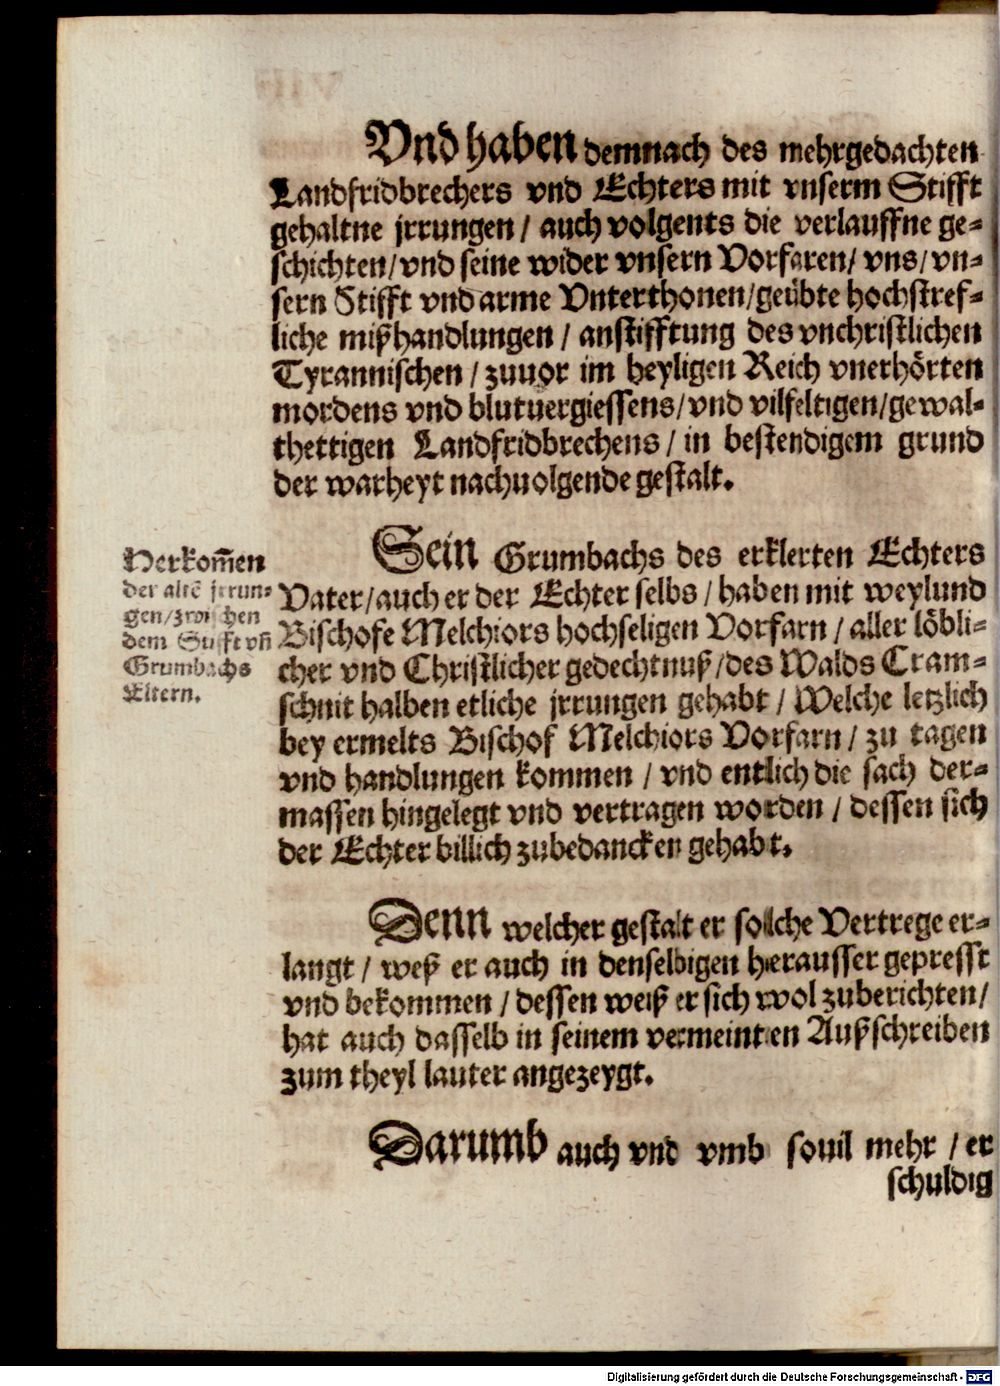 Vnd haben demnach des mehrgedachten
Landfridbrechers vnd Echters mit vnserm Stifft
gehaltne jrrungen / auch volgents die verlauffne ge-
schichten / vnd seine wider vnsern Vorfaren / vns / vn-
sern Stifft vnd arme Vnterthonen / geübte hochstref-
liche mißhandlungen / anstifftung des vnchristlichen
Tyrannischen / zuuor im heyligen Reich vnerhörten
mordens vnd blutuergiessens / vnd vilfeltigen / gewal-
thettigen Landfridbrechens / in bestendigem grund
der warheyt nachuolgende gestalt.
Herkom̃en
der altẽ jrrun-
gen / zwischen
dem Stifft vñ
Grumbachs
Eltern.
Sein Grumbachs des erklerten Echters
Vater / auch er der Echter selbs / haben mit weylund
Bischofe Melchiors hochseligen Vorfarn / aller löbli-
cher vnd Christlicher gedechtnuß / des Walds Cram-
schnit halben etliche jrrungen gehabt / Welche letzlich
bey ermelts Bischof Melchiors Vorfarn / zu tagen
vnd handlungen kommen / vnd entlich die sach der-
massen hingelegt vnd vertragen worden / dessen sich
der Echter billich zubedancken gehabt.
Denn welcher gestalt er solche Vertrege er-
langt / weß er auch in denselbigen herausser gepresst
vnd bekommen / dessen weiß er sich wol zuberichten /
hat auch dasselb in seinem vermeinten Außschreiben
zum theyl lauter angezeygt.
Darumb auch vnd vmb souil mehr / er
schuldig
Digitalisierung gefördert durch die Deutsche Forschungsgemeinschaft - DFG